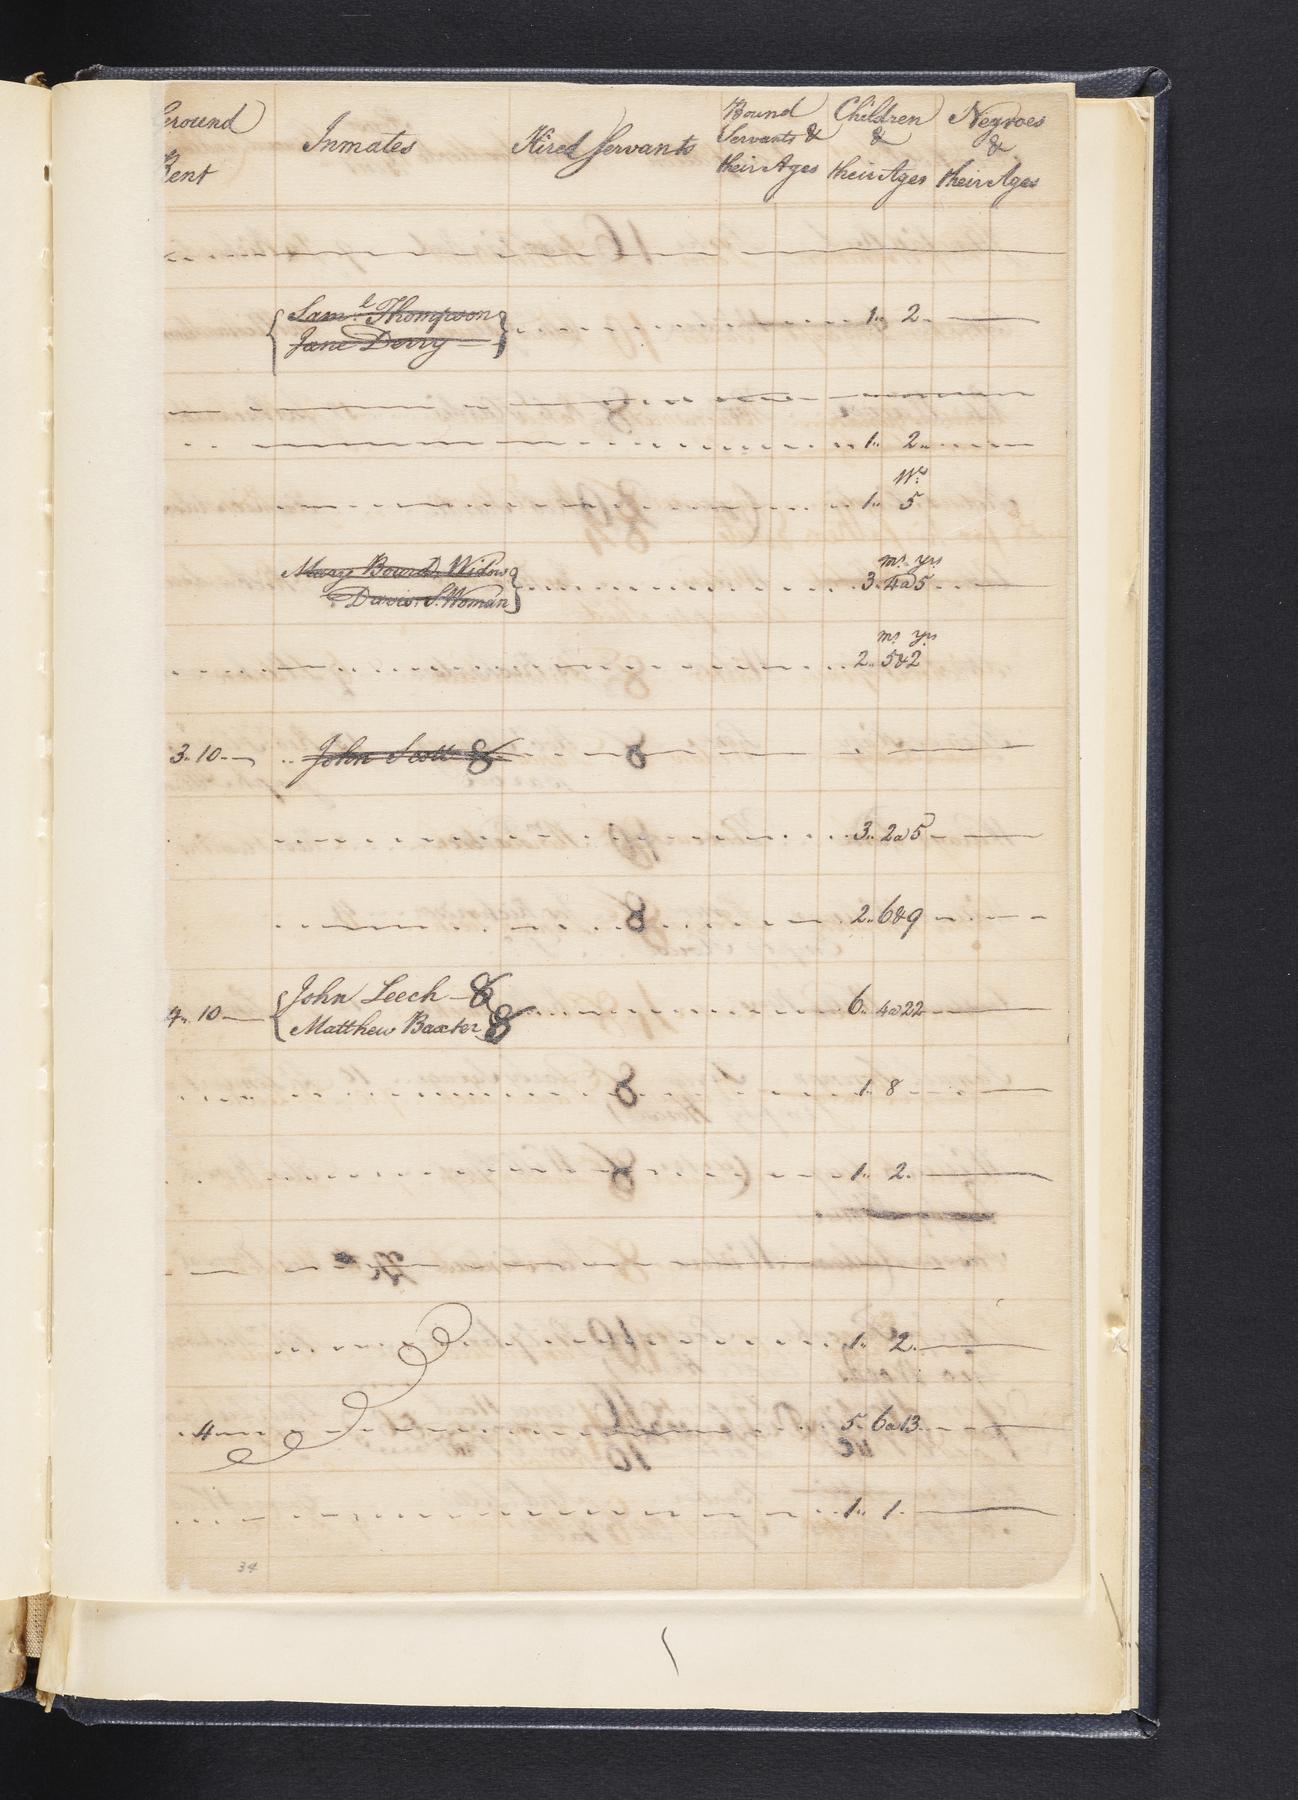 Ground Rent
Inmates
Hired Servants
Bound Servants & their Ages
Children & their Ages
Negroes & their Ages
Sam.l Thompson
Jane Derry
1.. 2.
1.. 2..
W.s
1.. 5
Mary Bound, Widow
Davis. S. Woman
ms. yrs.
3. 4 a 5
ms. yrs.
2.. 5 & 2
3.. 10
John Scott 8
3.. 2 a 5
2.. 6 & 9
4.. 10
John Leech 8
Matthew Baxter 8
6.. 4 a 22
1.. 8
1.. 2.
1.. 2.
4
5.. 6 a 13
1.. 1.
34